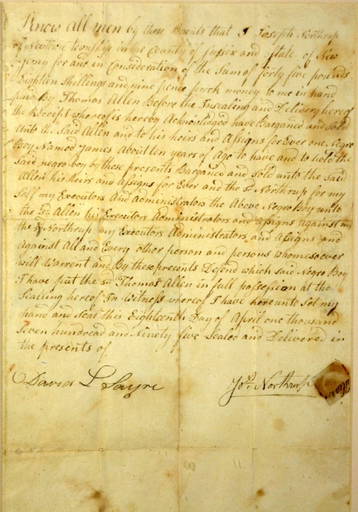 Know all men by these Presents that I Joseph Northrup
of Newtown Township in the County of Sussex and State of New
Jersey for and in Consideration of the Sum of forty five pounds
Eighteen Shillings and nine pence proch money to me in hand
paid By Thomas Allen Before the Insealing and Delivery hereof
the Receipt whereof is hereby Acknowledged have Bargained and Sold
Unto the Said Allen and to his heirs and Assigns for Ever one Negro
Boy Named James About ten years of Age to have and to hold the
Said negro boy by these presents Bargained and Sold unto the Said
Allen his Heirs and Assigns for Ever and the Sd Northrup for my
Self my Executors and Administrators the Above Negro Boy unto
the Sd Allen his Executors Administrators and Assigns against me
the Sd Northrup my Executors Administrators and Assigns and
Against All and Every other person and persons whomesoever
will Warrent and By these presents Defend which said Negro Boy
I have put the Sd Thomas Allen in full possession at the
Sealing hereof In Witness whereof I have hereunto Set my
hand and Seal this Eighteenth Day of April one thousand
Seven hundread and Ninety five Sealed and Delivered in
the presents of
David L Sayre
Jos. Northrup